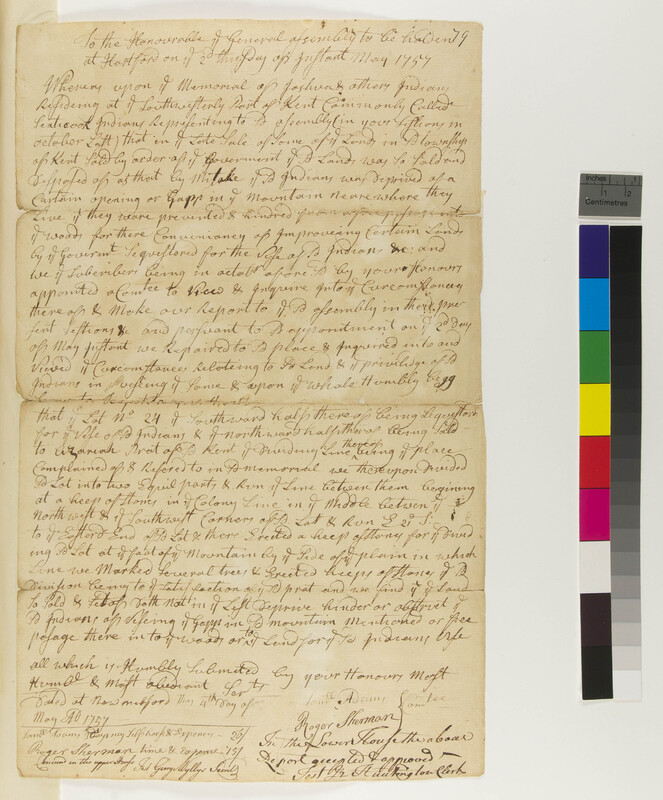 To the Honourable ye General assembly to be holden 79
at Hartford on ye 2d thirsday of Instant May 1757
Whereas upon ye Memorial of Joshua & others Indians
Resideing at ye Southwesterly Part of Kent Commonly Called
Indians Representing to sd assembly in your Sessions in
october Last that in ye Late Sale of Some of ye Lands in sd township
of Kent Sold by order of ye Goverment ye sd Lands was So Sold and
Disposed of at that by Mistake ye sd Indians was Deprived of a
Certain opening or Gapp in ye Mountain neere where they
Live & they ware prevented & hindred
ye woods for there Conveniancy of Improveing Certain Lands
by ye Goverment Sequestered for the Use of sd Indians &c and
we ye Subscribers being in octobr afore sd by your Honours
appointed a Comtee to View & Enquire into ye Curcomstances
there of & Make our Report to ye sd assembly in there pre
sent Sessions & and persuant to sd appointment on ye 2d Day
of May Instant we Repaired to sd place & Inquired into and
Viewed ye Curcomstances Relateing to sd Land & ye priviledge of sd
Indians in ye Same & upon ye whole Humbly
that ye Lot No 24 ye Southward half there of being Sequestered
for ye Use of sd Indians & ye northward half there of being Sold
to Prat of sd Kent ye Dividing Line thereof being ye place
Complained of & Refered to in sd memorial we thereupon Divided
sd Lot into two Equil parts & Run ye Line between them begining
at a heep of Stones in ye Colony Line in ye Middle between ye
North west & ye Southwest Corners of sd Lot & Run
to ye End of sd Lot & there Erected a heep of stones for ye Divid
ing sd Lot at ye foot of ye Mountain by ye Side of ye plain in which
Line we Marked Several trees & Erected heeps of Stones ye sd
Division being to ye Satisfaction of ye sd prat and we find ye Land
So Sold & Set of Doth Not in ye Least Deprive hinder or obstruct ye
sd Indians of Useing ye Gapp in sd mountain Mentioned or free
pasage there in to ye woods or to ye Land for ye sd Indians Use
all which is Humbly Submitted by your Honours Most
Humble & Most obediant Servts
Dated at New milford May 4th Day of
May AD 1757
Saml Adams
Roger Sherman
Comtee
Saml Adams Expences
Roger Sherman time & expence
In the Lower House the above
Report accepted & approved
Test Huntington Clerk
in the upper House Test George Wyllys Secretr
inches
1 2
Centimetres